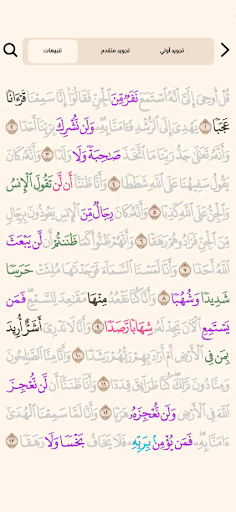 تجويد أولي تجويد متقدم تنبيهات
قُلْ أُوحِيَ إِلَيَّ أَنَّهُ ٱسْتَمَعَ نَفَرٌ مِّنَ ٱلْجِنِّ فَقَالُوٓا۟ إِنَّا سَمِعْنَا قُرْءَانًا
عَجَبًا ١ يَهْدِىٓ إِلَى ٱلرُّشْدِ فَـَٔامَنَّا بِهِۦ وَلَن نُّشْرِكَ بِرَبِّنَآ أَحَدًا ٢
وَأَنَّهُۥ تَعَـٰلَىٰ جَدُّ رَبِّنَا مَا ٱتَّخَذَ صَـٰحِبَةً وَلَا وَلَدًا ٣ وَأَنَّهُۥ كَانَ
يَقُولُ سَفِيهُنَا عَلَى ٱللَّهِ شَطَطًا ٤ وَأَنَّا ظَنَنَّآ أَن لَّن تَقُولَ ٱلْإِنسُ
وَٱلْجِنُّ عَلَى ٱللَّهِ كَذِبًا ٥ وَأَنَّهُۥ كَانَ رِجَالٌ مِّنَ ٱلْإِنسِ يَعُوذُونَ بِرِجَالٍ
مِّنَ ٱلْجِنِّ فَزَادُوهُمْ رَهَقًا ٦ وَأَنَّهُمْ ظَنُّوا۟ كَمَا ظَنَنتُمْ أَن لَّن يَبْعَثَ
ٱللَّهُ أَحَدًا ٧ وَأَنَّا لَمَسْنَا ٱلسَّمَآءَ فَوَجَدْنَـٰهَا مُلِئَتْ حَرَسًا
شَدِيدًا وَشُهُبًا ٨ وَأَنَّا كُنَّا نَقْعُدُ مِنْهَا مَقَـٰعِدَ لِلسَّمْعِ فَمَن
يَسْتَمِعِ ٱلْـَٔانَ يَجِدْ لَهُۥ شِهَابًا رَّصَدًا ٩ وَأَنَّا لَا نَدْرِىٓ أَشَرٌّ أُرِيدَ
بِمَن فِى ٱلْأَرْضِ أَمْ أَرَادَ بِهِمْ رَبُّهُمْ رَشَدًا ١٠ وَأَنَّا مِنَّا ٱلصَّـٰلِحُونَ
وَمِنَّا دُونَ ذَٰلِكَ كُنَّا طَرَآئِقَ قِدَدًا ١١ وَأَنَّا ظَنَنَّآ أَن لَّن نُّعْجِزَ
ٱللَّهَ فِى ٱلْأَرْضِ وَلَن نُّعْجِزَهُۥ هَرَبًا ١٢ وَأَنَّا لَمَّا سَمِعْنَا ٱلْهُدَىٰٓ
ءَامَنَّا بِهِۦ فَمَن يُؤْمِنۢ بِرَبِّهِۦ فَلَا يَخَافُ بَخْسًا وَلَا رَهَقًا ١٣